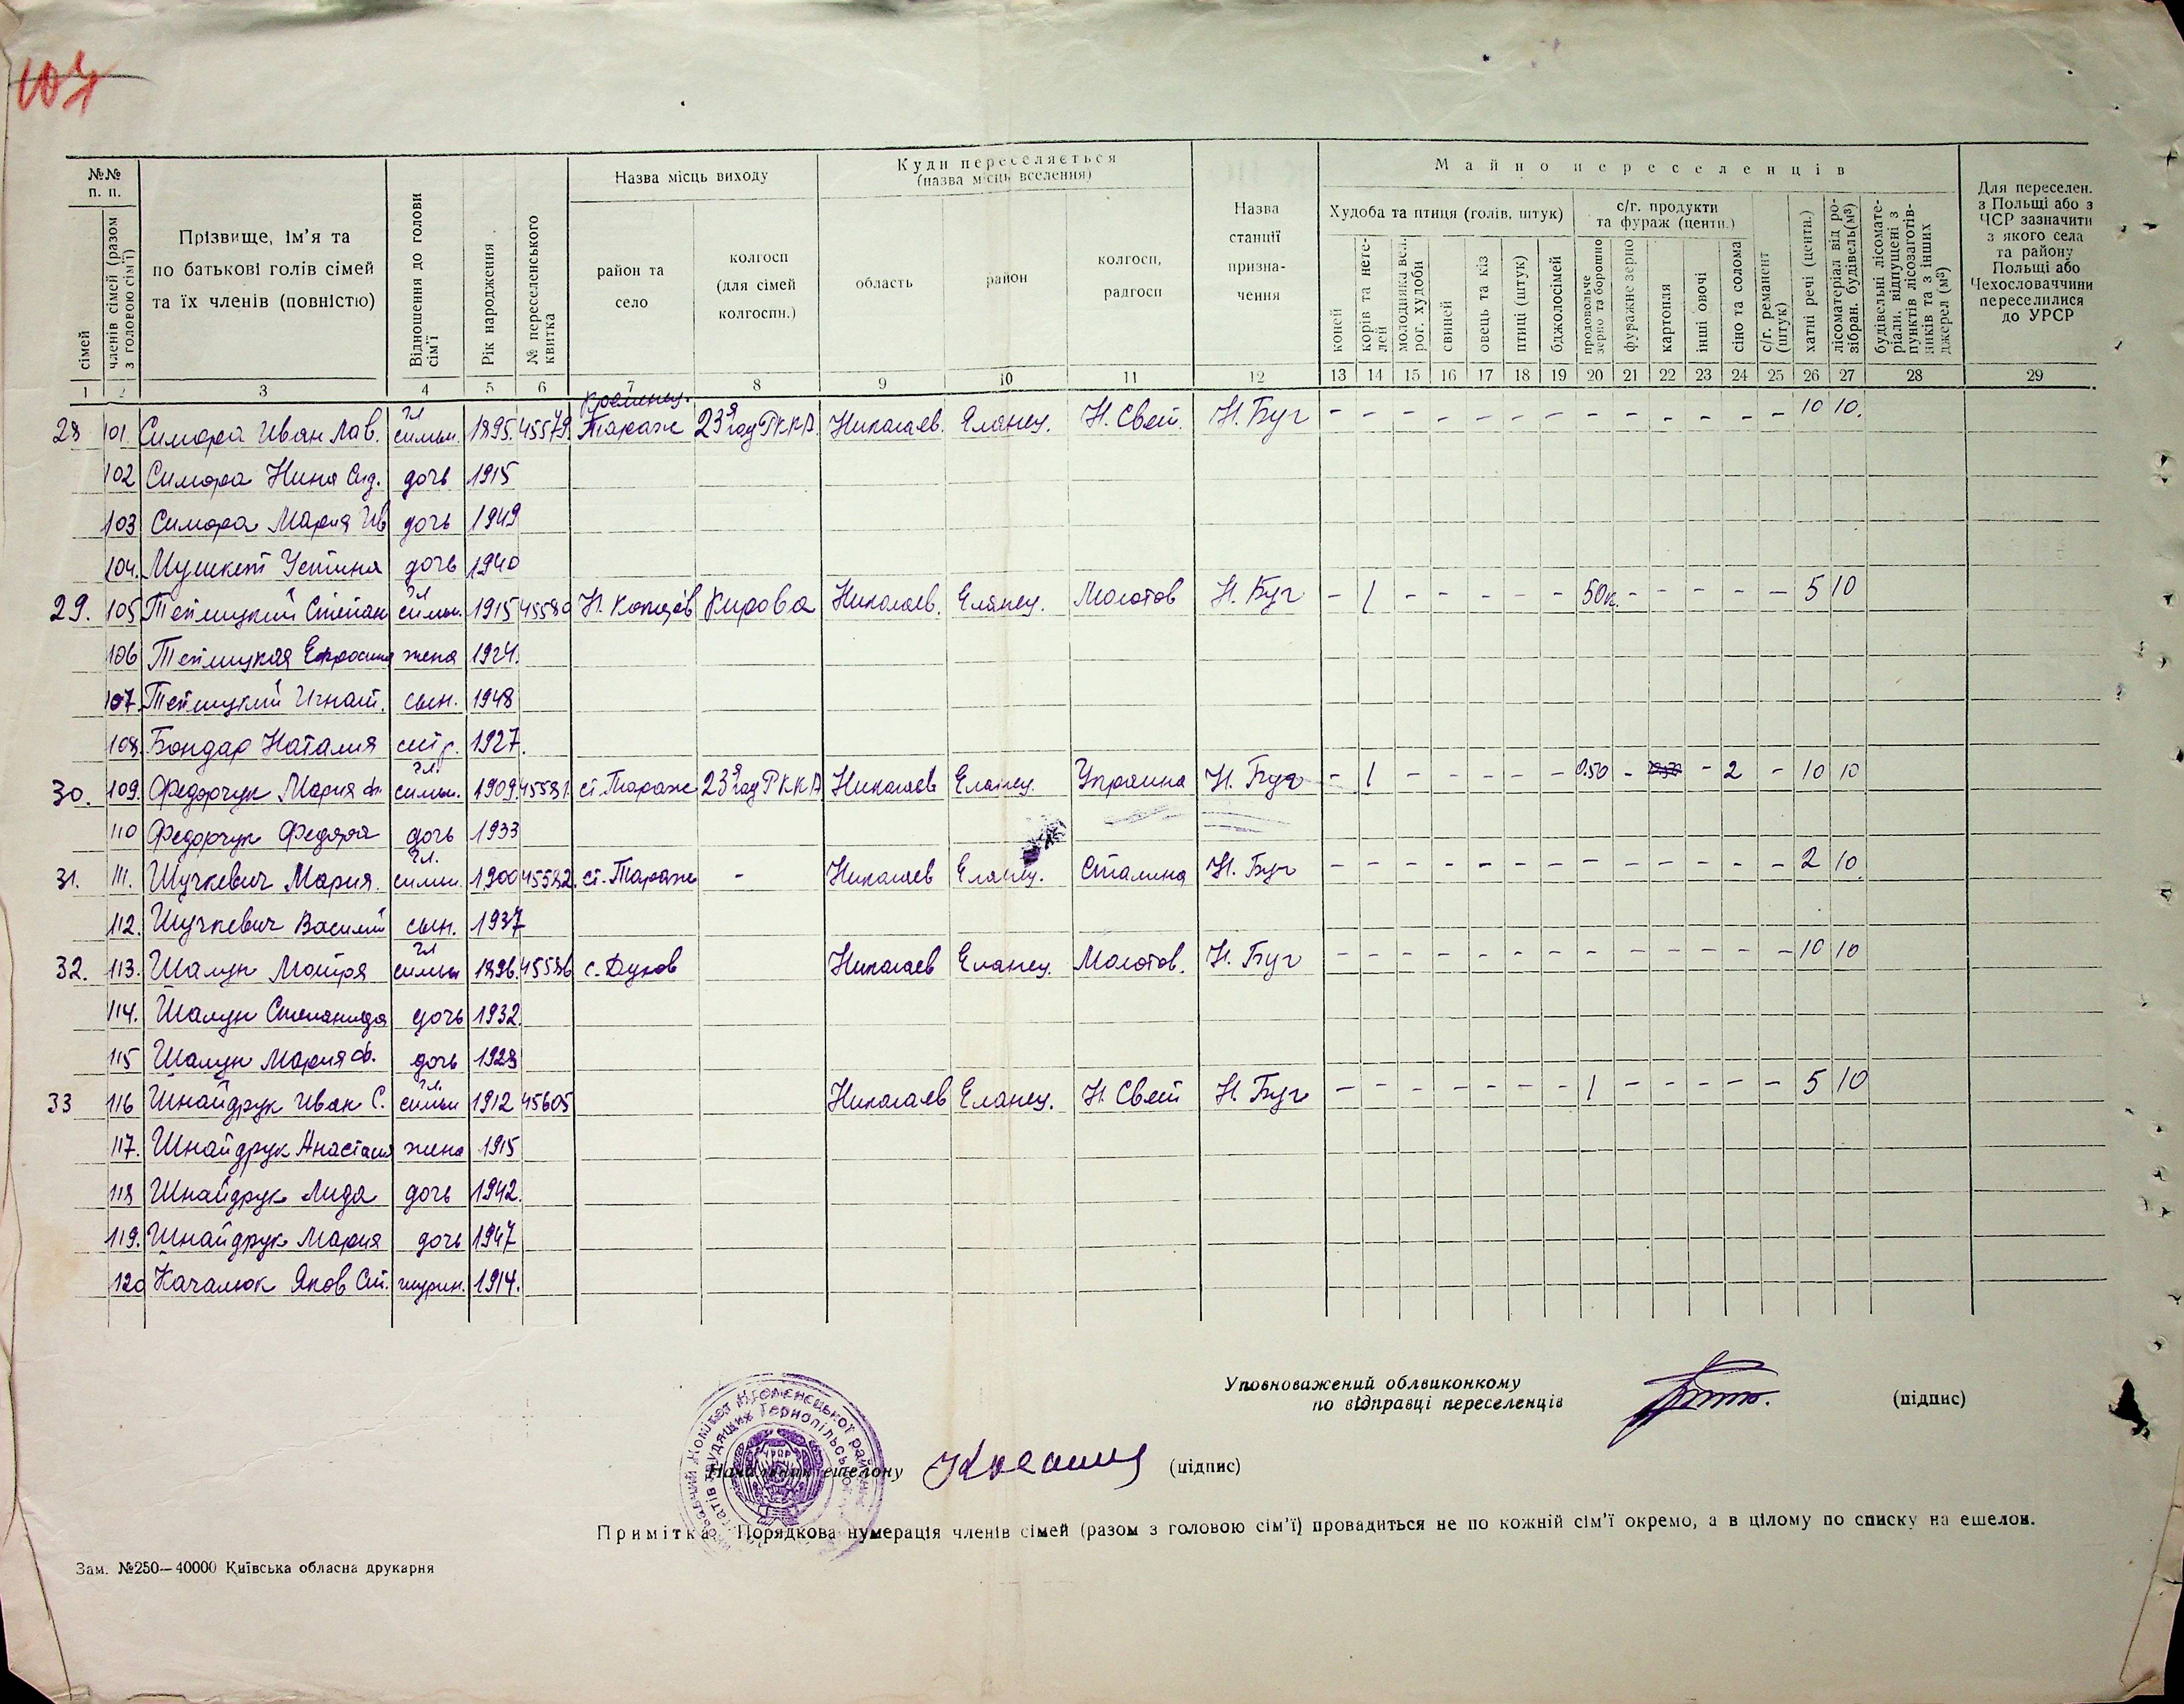 107
№№ п. п.
сімей
членів сімей (разом з головою сім'ї)
Прізвище, ім'я та по батькові голів сімей та їх членів (повністю)
Відношення до голови сім'ї
Рік народження
№ переселенського квитка
Назва місць виходу
район та село
колгосп (для сімей колгоспн.)
Куди переселяється (назва місць вселення)
область
район
колгосп, радгосп
Назва станції призна-чення
Майно переселенців
Худоба та птиця (голів, штук)
коней
корів та нете-лей
молодняка вел. рог. худоби
свиней
овець та кіз
птиці (штук)
бджолосімей
с/г. продукти та фураж (центн.)
продовольче зерно та борошно
фуражне зерно
картопля
інші овочі
сіно та солома
с/г. реманент (штук)
хатні речі (центн.)
лісоматеріал від ро-зібран. будівель (м³)
будівельні лісомате-ріали, відпущені з пунктів лісозаготів-ників та з інших джерел (м³)
Для переселен. з Польщі або з ЧСР зазначити з якого села та району Польщі або Чехословаччини переселилися до УРСР
1 2 3 4 5 6 7 8 9 10 11 12 13 14 15 16 17 18 19 20 21 22 23 24 25 26 27 28 29
28 101. Симора Иван Лав. гл семьи. 1895. 45579. Кременец. Тараж 23я год РККА Николаев. Еланец. Н. Свет. Н. Буг - - - - - - - - - - - - - 10 10.
102 Симора Нина Сид. дочь 1915
103 Симора Мария Ив дочь 1949
104. Мушкет Устина дочь 1940
29. 105 Теплицкий Степан гл семьи. 1915 45580 Кирова Николаев. Еланец. Молотов Н. Буг - 1 - - - - - 50к. - - - - - 5 10
106 Теплицкая Ефросиня жена 1924.
107. Теплицкий Игнат. сын. 1948
108. Бондар Наталия сестр. 1927.
30. 109. Федорчук Мария Ф. гл. семьи. 1909. 45581. ст. Тараж 23я год РККА Николаев Еланец. Украина Н. Буг - 1 - - - - - 0.50 - - 2 - 10 10
110 Федорчук Федора дочь 1933
31. 111. Шучкевич Мария. гл. семьи. 1900 45582. ст. Тараж - Николаев Еланец. Сталина Н. Буг - - - - - - - - - - - - - 2 10.
112. Шучкевич Василий сын. 1937
32. 113. Шалун Мотря гл семьи 1896. 45586 с. Дунов Николаев Еланец. Молотов. Н. Буг - - - - - - - - - - - - - 10 10
114. Шалун Степанида дочь 1932.
115 Шалун Мария Ф. дочь 1928
33 116 Шнайдрук Иван С. гл. семьи 1912 45605 Николаев Еланец. Н. Свет Н. Буг - - - - - - - 1 - - - - - 5 10
117. Шнайдрук Анастасия жена 1915
118 Шнайдрук Лида дочь 1942.
119. Шнайдрук Мария дочь 1947
120 Качалюк Яков Ст. шурин. 1914.
Уповноважений облвиконкому
по відправці переселенців (підпис)
Начальник ешелону (підпис)
Примітка. Порядкова нумерація членів сімей (разом з головою сім'ї) провадиться не по кожній сім'ї окремо, а в цілому по списку на ешелон.
Зам. №250—40000 Київська обласна друкарня